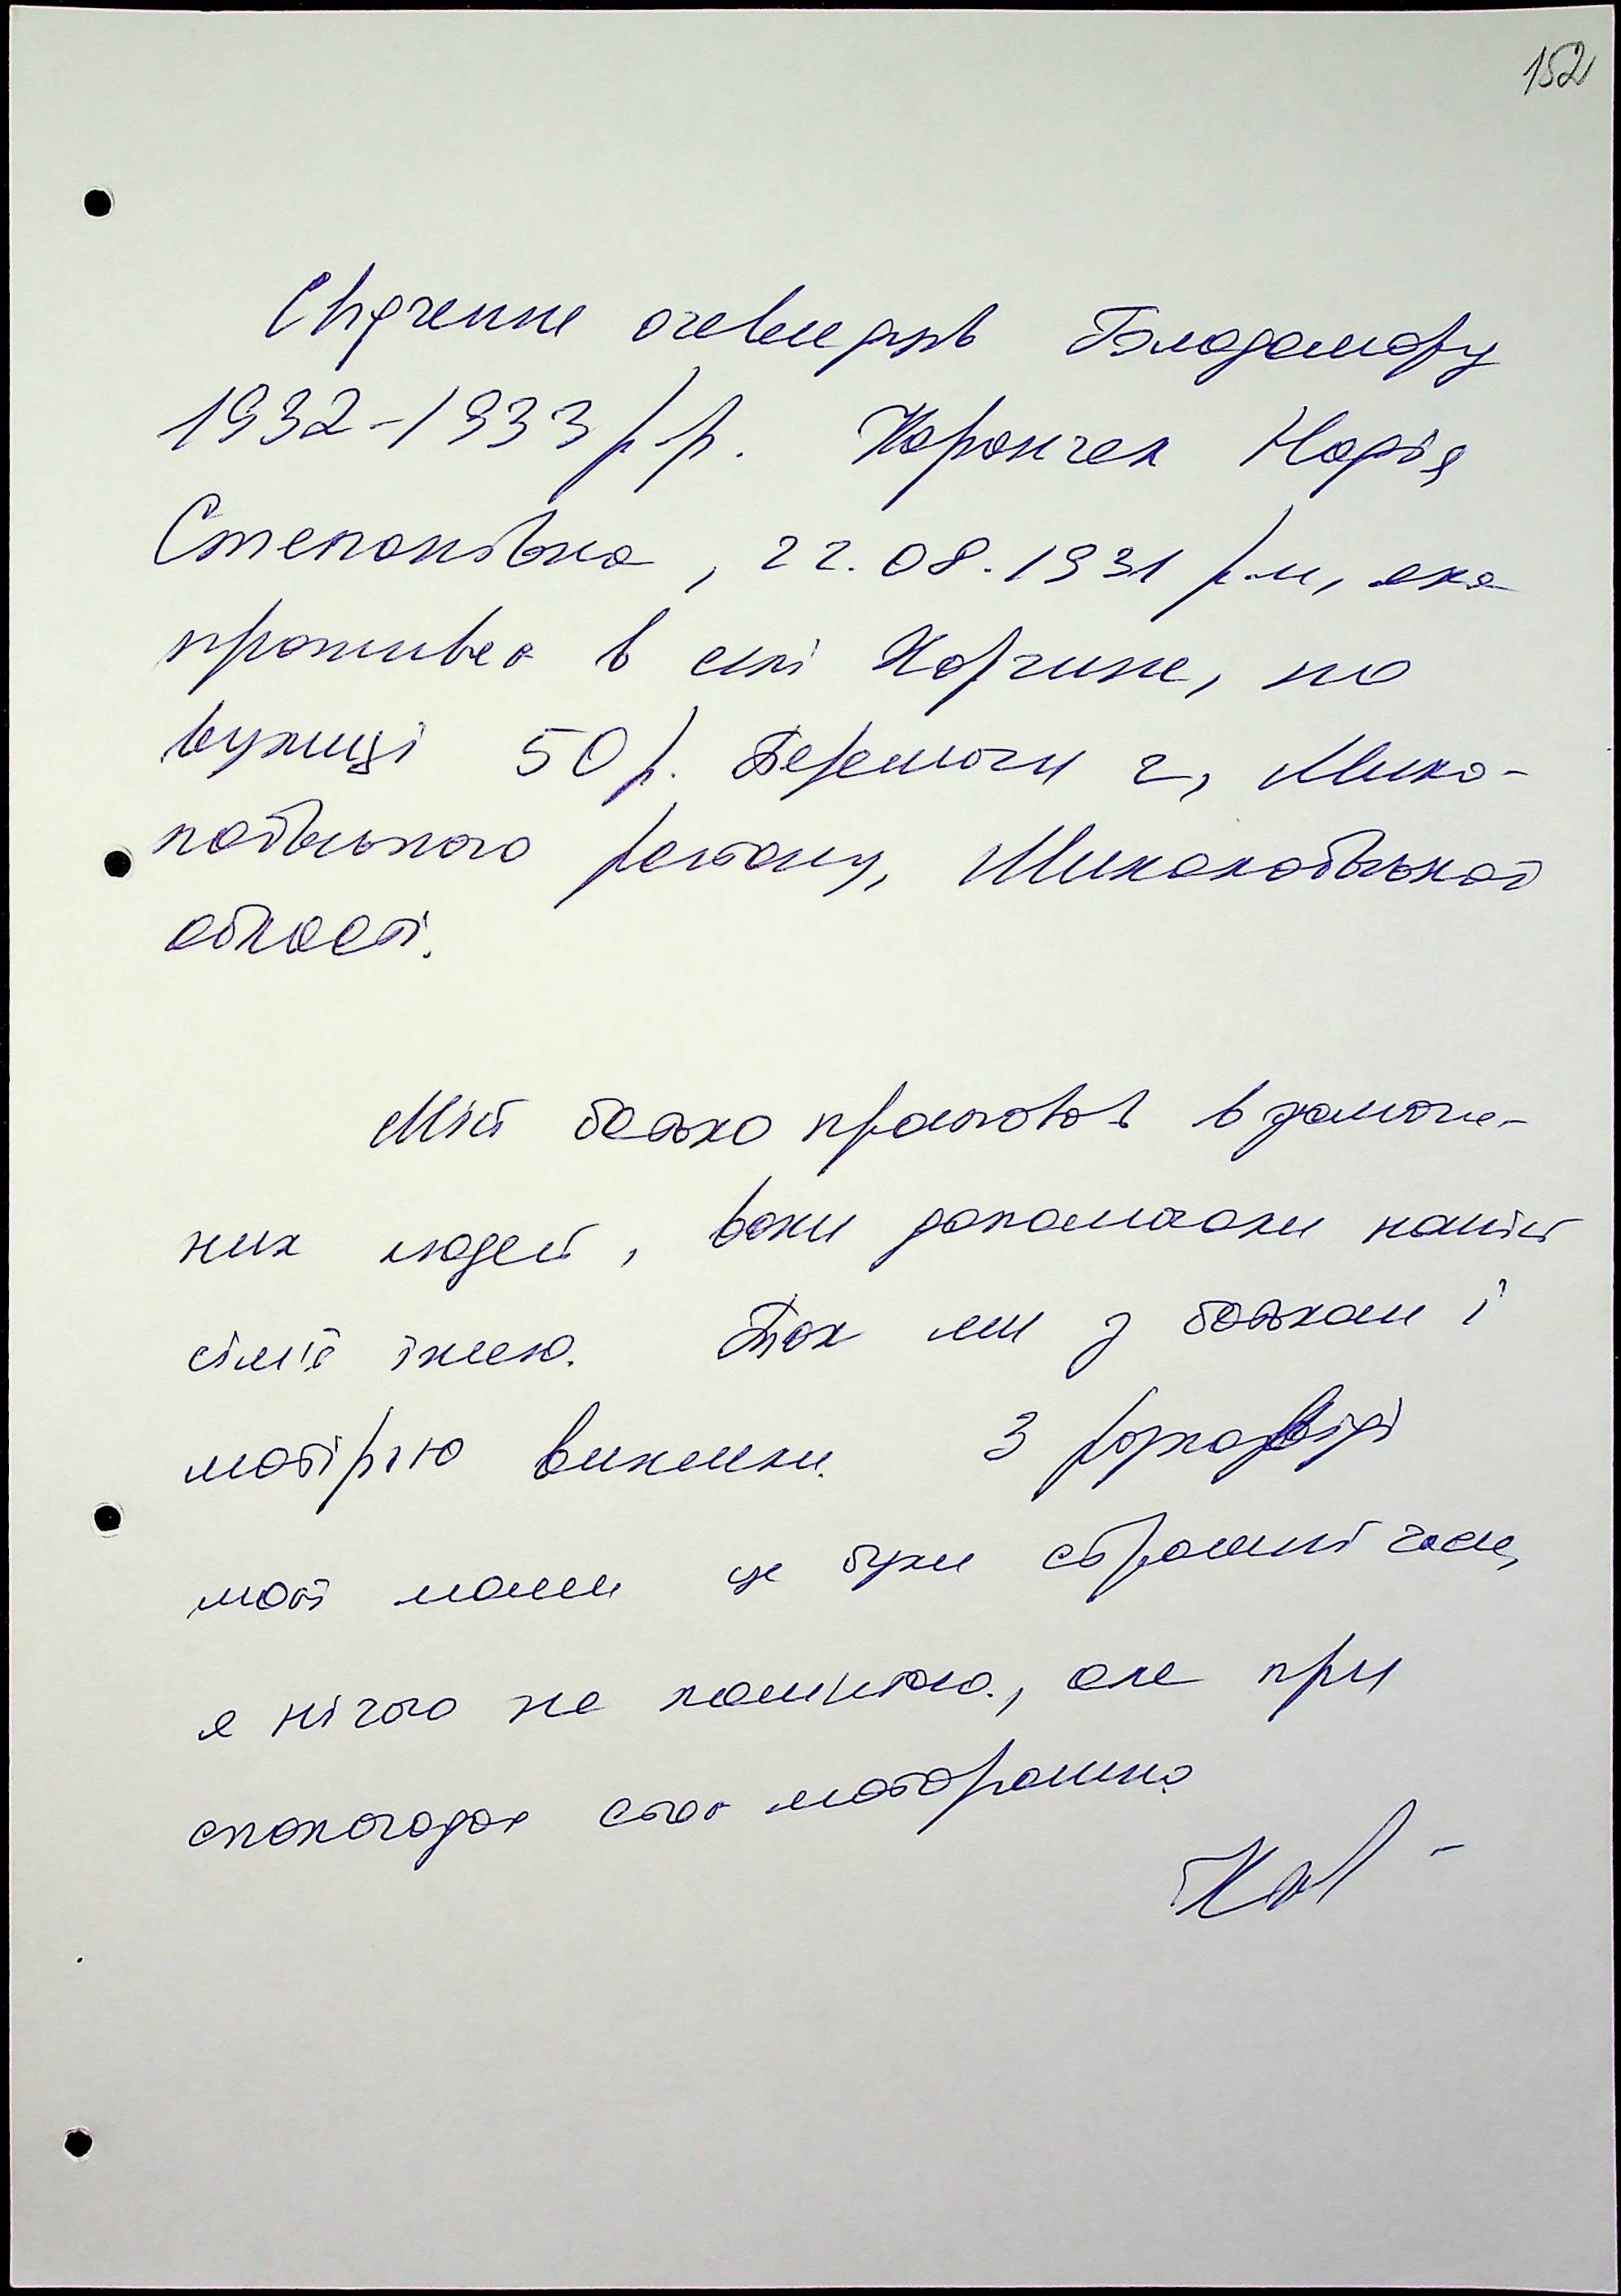 152
Свідчення очевидців Голодомору
1932-1933 р.р. Марія
Степанівна, 22.08.1931 р.н, яка
проживає в селі , по
вулиці 50 р. Перемоги 2, Мико-
лаївського району, Миколаївської
області.
Мій батько працював в замож-
них людей, вони допомагали нашій
сім'ї їжею. Так ми з батьком і
матір'ю вижили. З розповіді
моєї мами це були страшні часи,
я нічого не помню, але при
спогадах стає моторошно